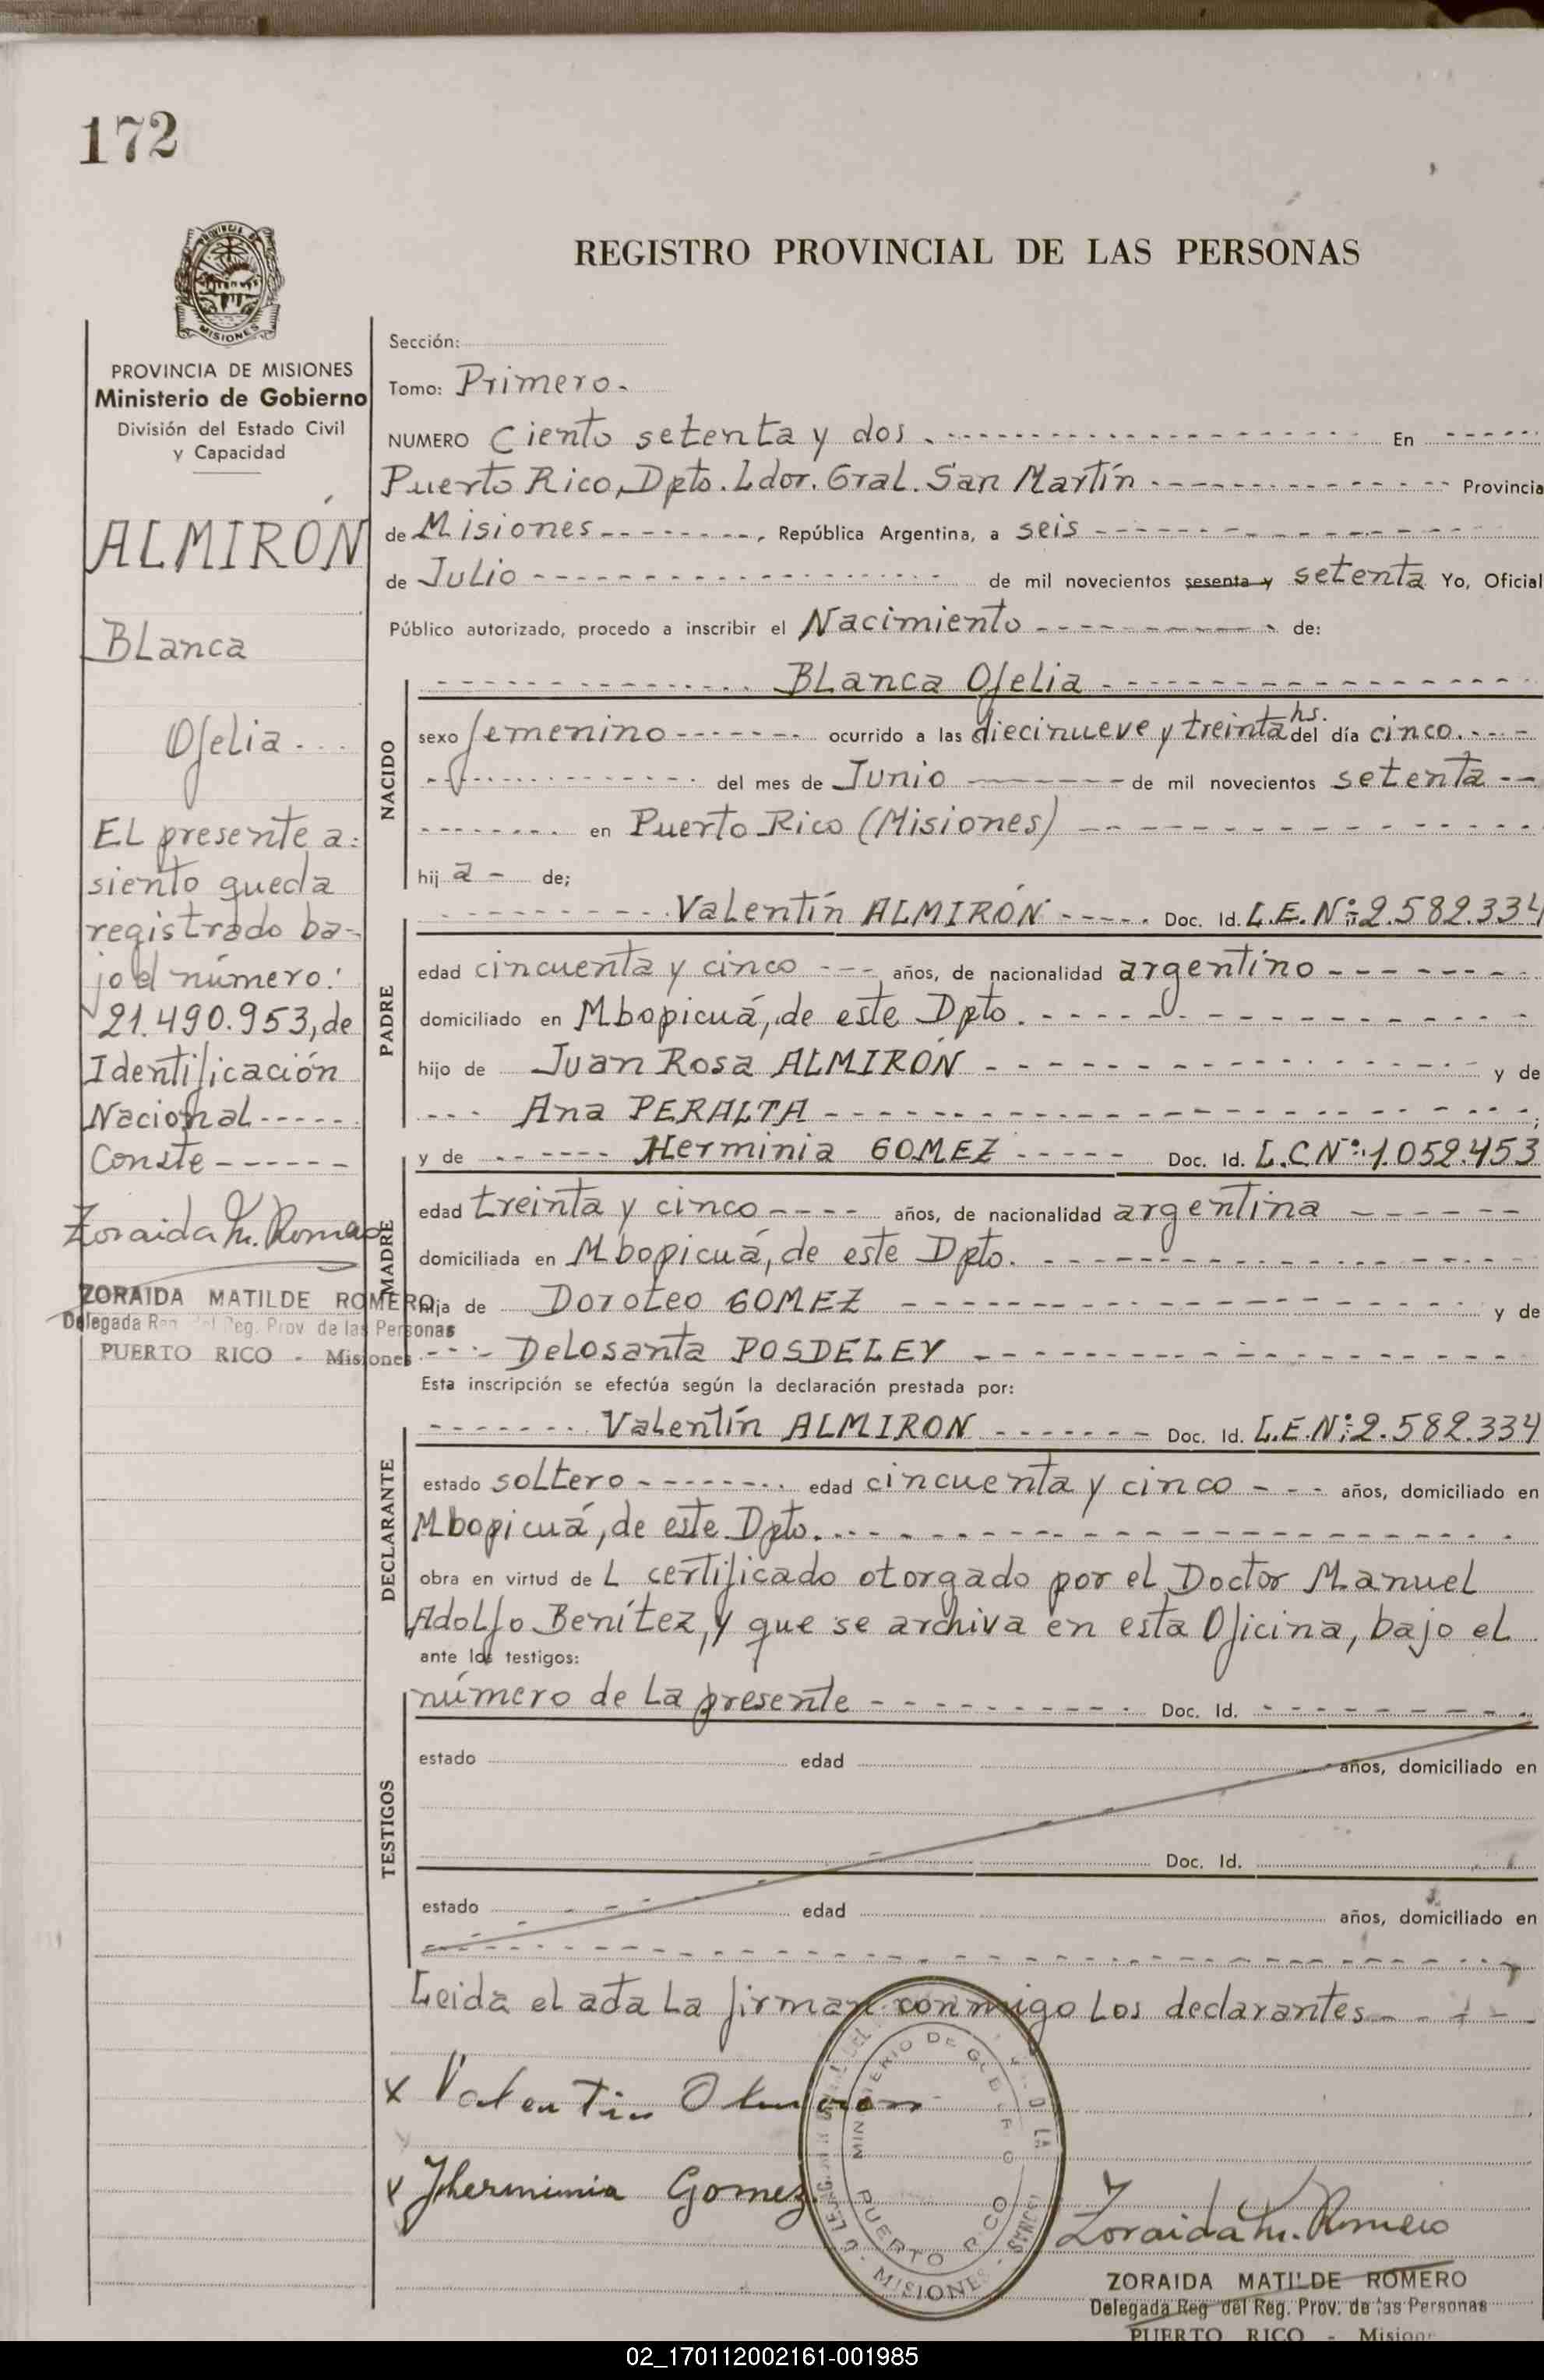 172
REGISTRO PROVINCIAL DE LAS PERSONAS
PROVINCIA DE MISIONES
Ministerio de Gobierno
División del Estado Civil
y Capacidad
ALMIRÓN
Blanca
Ofelia
El presente a=
siento queda
registrado ba-
jo el número:
21.490.953, de
Identificación
Nacional
Conste
Zoraida M. Romero
ZORAIDA MATILDE ROMERO
Delegada Reg. del Reg. Prov. de las Personas
PUERTO RICO - Misiones
Sección:
Tomo: Primero.
NUMERO Ciento setenta y dos. En
Puerto Rico, Dpto. Ldor. Gral. San Martín Provincia
de Misiones, República Argentina, a seis
de Julio de mil novecientos sesenta y setenta Yo, Oficial
Público autorizado, procedo a inscribir el Nacimiento de:
NACIDO
Blanca Ofelia
sexo femenino ocurrido a las diecinueve y treinta hs. del día cinco.
del mes de Junio de mil novecientos setenta
en Puerto Rico (Misiones)
hij a de;
PADRE
Valentín ALMIRÓN Doc. Id. L.E. Nº: 2.582.334
edad cincuenta y cinco años, de nacionalidad argentino
domiciliado en Mbopicuá, de este Dpto.
hijo de Juan Rosa ALMIRÓN y de
Ana PERALTA ;
MADRE
y de Herminia GOMEZ Doc. Id. L.C Nº: 1.052.453
edad treinta y cinco años, de nacionalidad argentina
domiciliada en Mbopicuá, de este Dpto.
hija de Doroteo GOMEZ y de
Delosanta POSDELEY
Esta inscripción se efectúa según la declaración prestada por:
DECLARANTE
Valentín ALMIRON Doc. Id. L.E. Nº: 2.582.334
estado soltero edad cincuenta y cinco años, domiciliado en
Mbopicuá, de este Dpto.
obra en virtud de L certificado otorgado por el Doctor Manuel
Adolfo Benítez, y que se archiva en esta Oficina, bajo el
ante los testigos:
TESTIGOS
número de la presente Doc. Id.
estado edad años, domiciliado en
Doc. Id.
estado edad años, domiciliado en
Leida el acta la firman conmigo los declarantes
x Valentin Almiron
x Jherminia Gomez
MINISTERIO DE GOBIERNO
PUERTO RICO
MISIONES
Zoraida M. Romero
ZORAIDA MATILDE ROMERO
Delegada Reg del Reg. Prov. de las Personas
PUERTO RICO - Misione
02_170112002161-001985